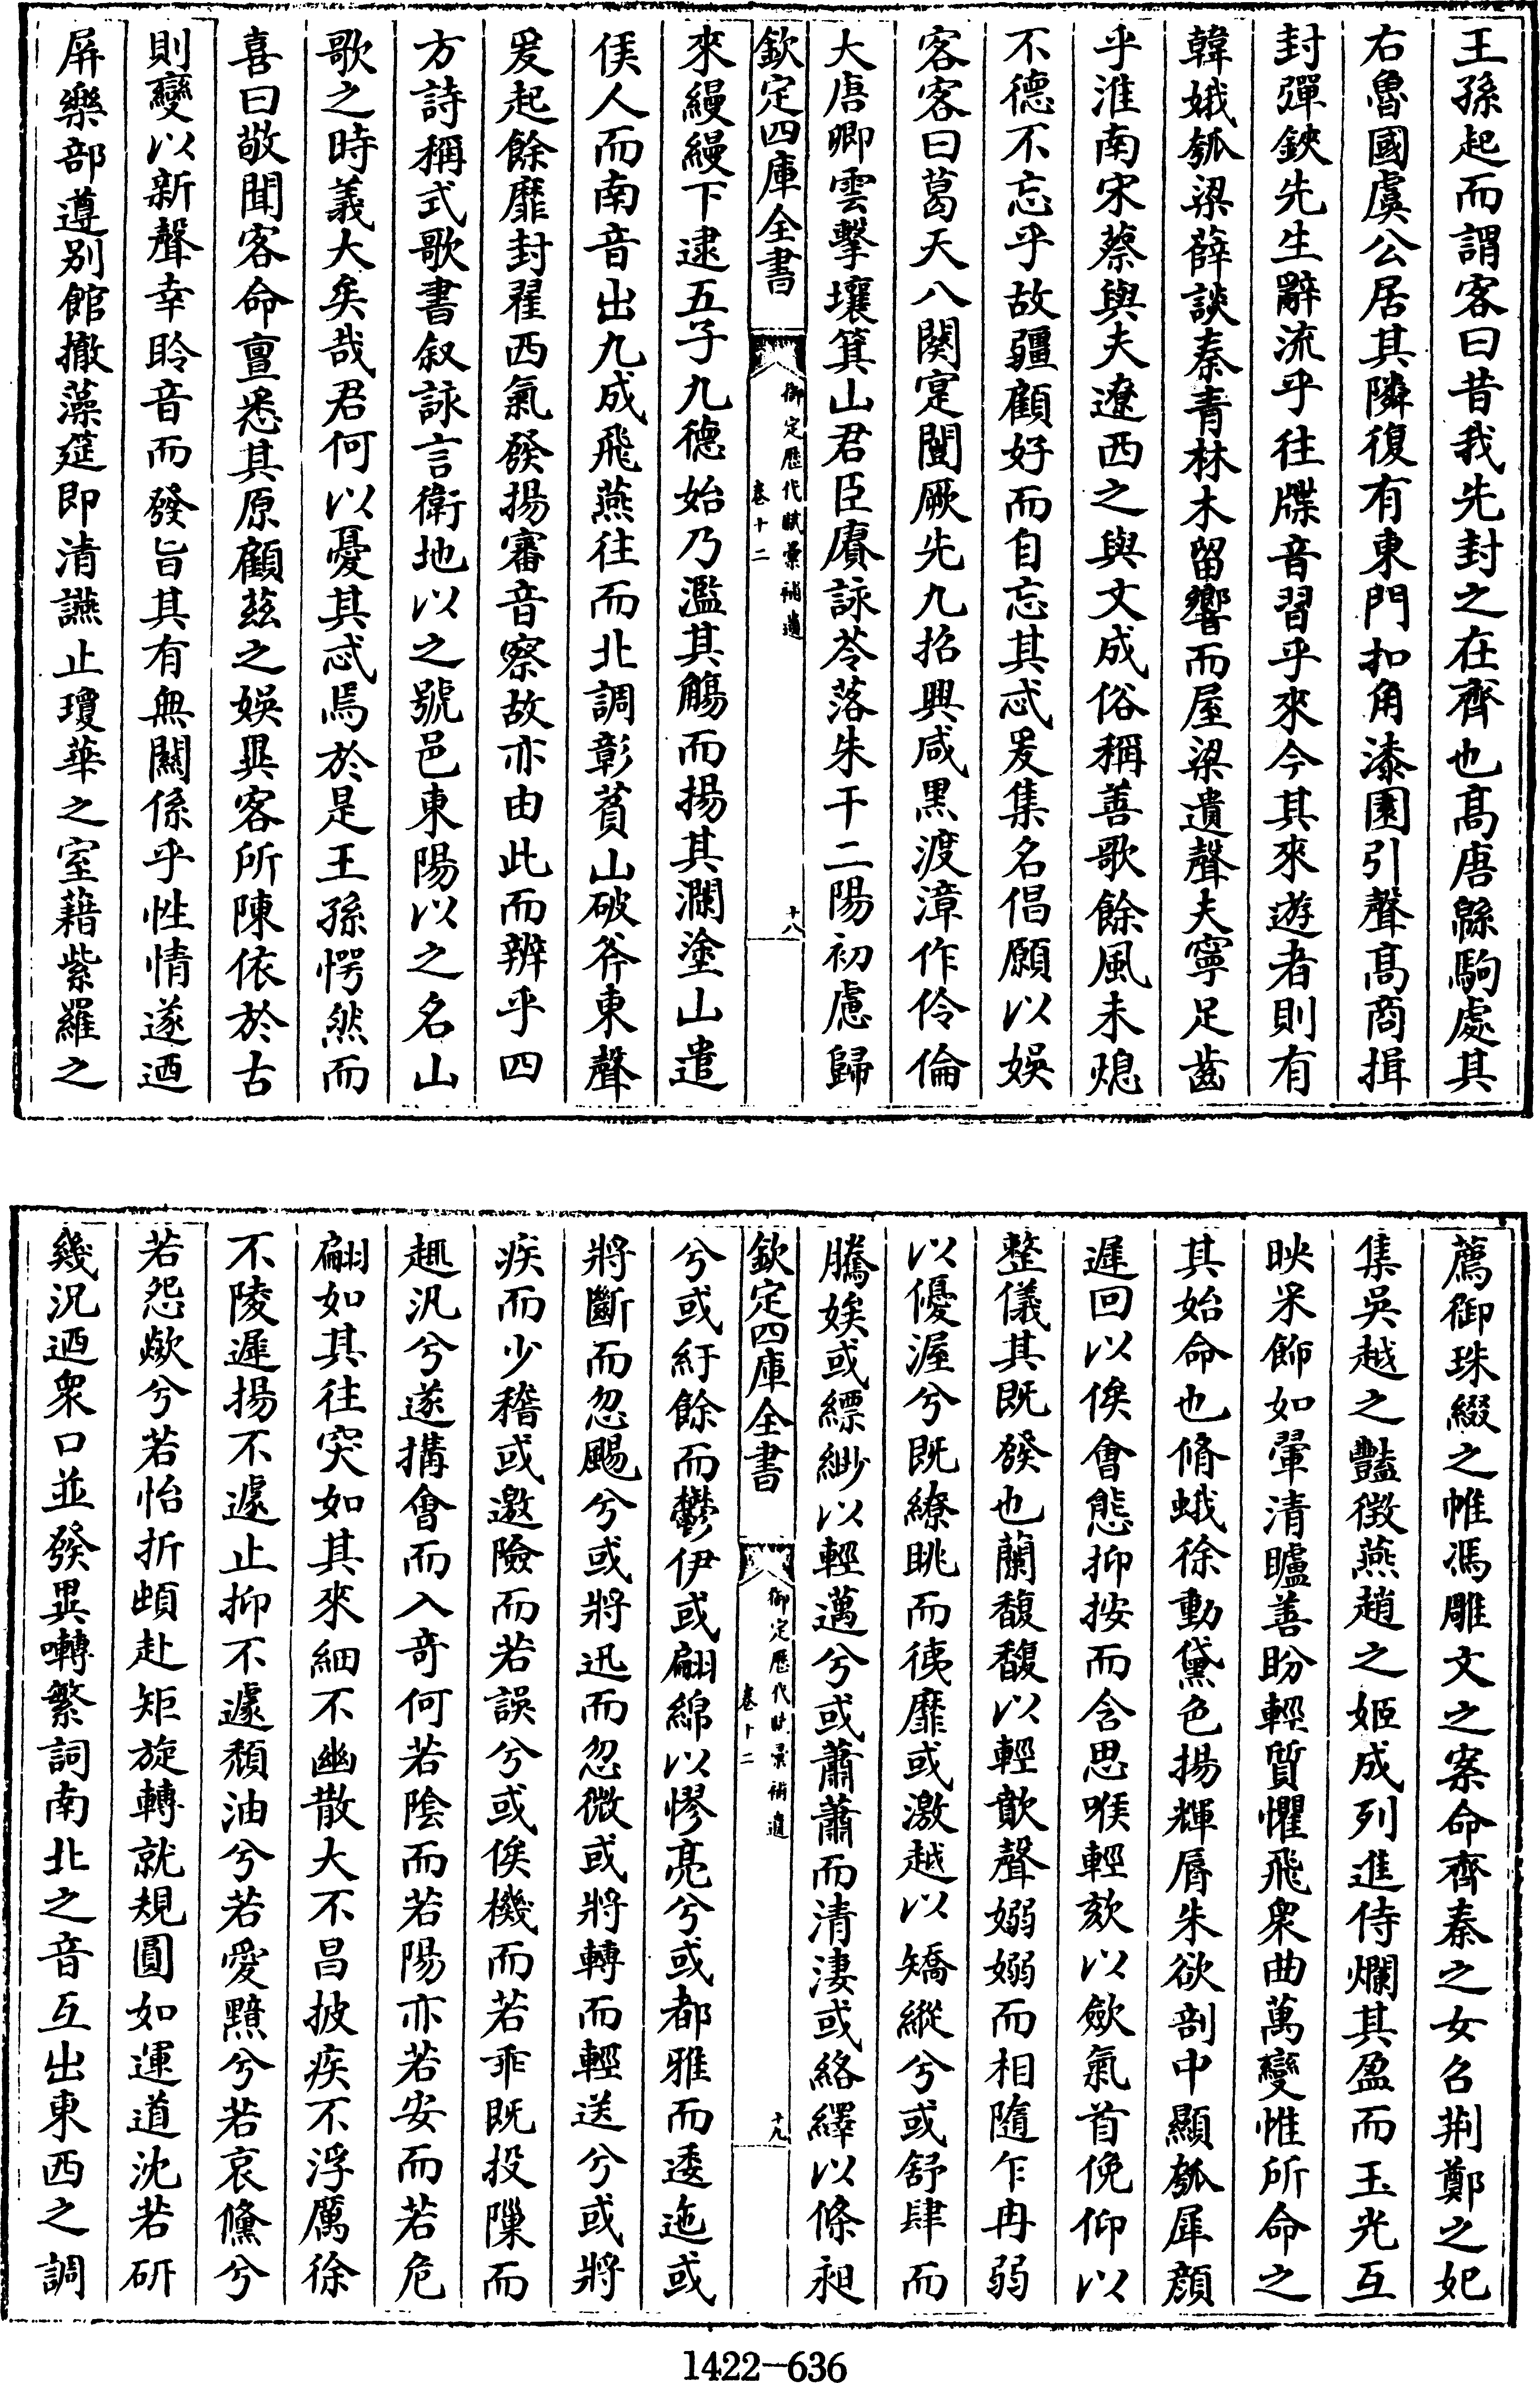 王孫起而謂客曰昔我先封之在齊也髙唐緜駒處其
右魯國虞公居其隣復有東門扣角漆園引聲髙商揖
封彈鋏先生辭流乎往牒音習乎來今其來遊者則有
韓娥瓠梁薛談秦青林木留響而屋梁遺聲夫寧足齒
乎淮南宋蔡與夫遼西之與文成俗稱善歌餘風未熄
不德不忘乎故疆顧好而自忘其忒爰集名倡願以娛
客客曰葛天八闋寔闓厥先九招興咸黒渡漳作伶倫
大唐卿雲擊壤箕山君臣賡詠苓落朱干二陽初慮歸
欽定四庫全書
御定歴代賦彙補遺
卷十二
十八
來縵縵下逮五子九德始乃濫其觴而揚其瀾塗山遣
侯人而南音出九成飛燕往而北調彰萯山破斧東聲
爰起餘靡封翟西氣發揚審音察故亦由此而辨乎四
方詩稱式歌書叙詠言衛地以之號邑東陽以之名山
歌之時義大矣哉君何以憂其忒焉於是王孫愕然而
喜曰敬聞客命亶悉其原顧兹之娛異客所陳依於古
則變以新聲幸聆音而發旨其有無闗係乎性情遂迺
屏樂部遵别館撤藻筵即清讌止瓊華之室藉紫羅之
薦御珠綴之帷馮雕文之案命齊秦之女召荆鄭之妃
集吳越之豔徴燕趙之姬成列進侍爛其盈而玉光互
映采飾如翬清矑善盼輕質懼飛衆曲萬變惟所命之
其始命也脩蛾徐動黛色揚輝脣朱欲剖中顯瓠犀顔
遲回以俟會態抑按而含思喉輕欬以歛氣首俛仰以
整儀其既發也蘭馥馥以輕歕聲嫋嫋而相隨乍冉弱
以優渥兮既繚眺而㣦靡或激越以矯縱兮或舒肆而
騰娭或縹緲以輕邁兮或蕭蕭而清淒或絡繹以條昶
欽定四庫全書
御定歴代賦彙補遺
卷十二
十九
兮或紆餘而鬱伊或翩綿以憀亮兮或都雅而逶迤或
將斷而忽颺兮或將迅而忽微或將轉而輕送兮或將
疾而少稽或邀險而若誤兮或俟機而若乖既投隟而
趣汎兮遂搆會而入奇何若陰而若陽亦若安而若危
翩如其往突如其來細不幽散大不昌披疾不浮厲徐
不陵遲揚不遽止抑不遽頽油兮若愛黯兮若哀儵兮
若怨歘兮若怡折頔赴矩旋轉就規圓如運道沈若硏
幾況迺衆口並發異囀繁詞南北之音互出東西之調
1422-636